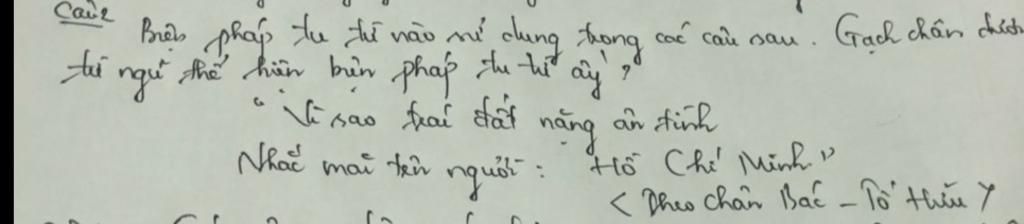 Câu 2
Biện pháp tu từ nào sử dụng trong các câu sau. Gạch chân dưới
từ ngữ thể hiện biện pháp tu từ ấy?
"Vì sao trái đất nặng ân tình
Nhắc mãi tên người: Hồ Chí Minh"
< Theo chân Bác - Tố Hữu >